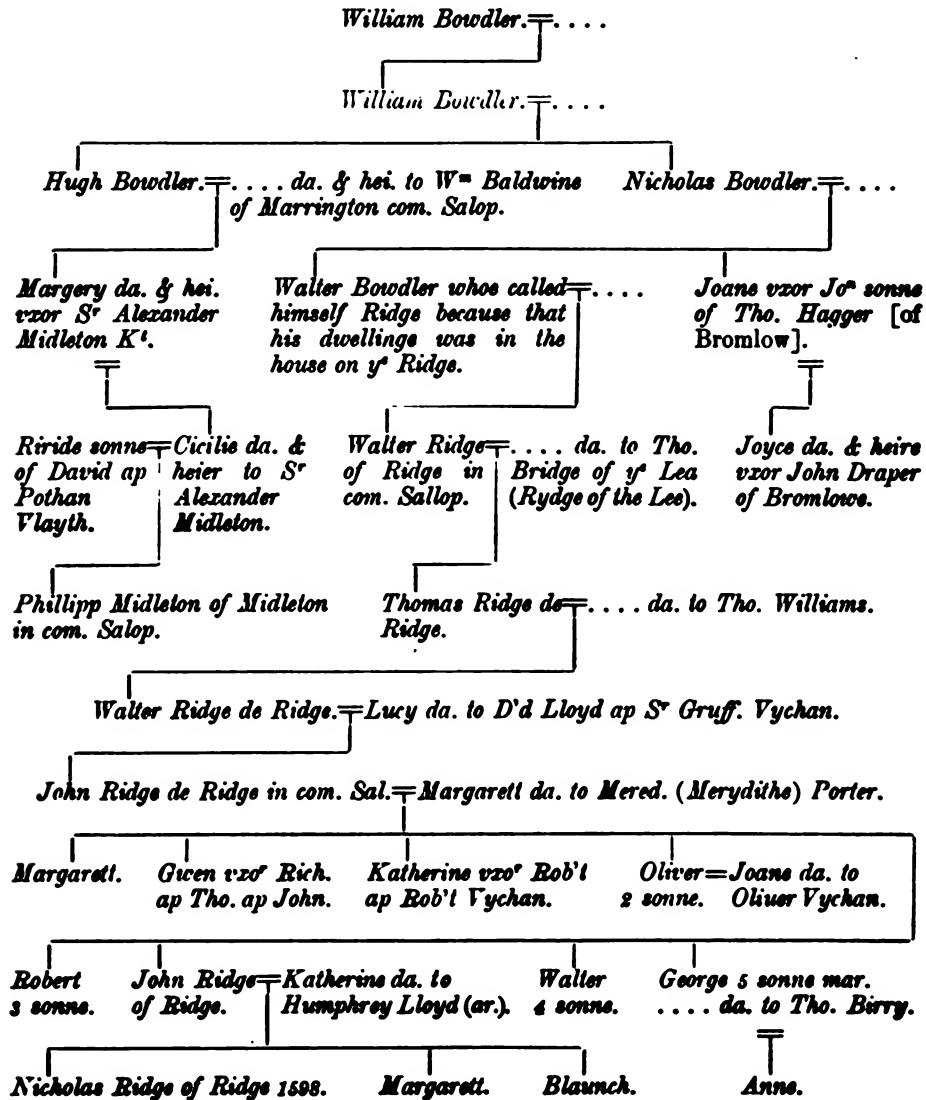 William Bowdler.=. . . .
William Bowdler.=. . . .
Hugh Bowdler.=. . . . da. & hei. to Wᵐ Baldwine
of Marrington com. Salop.
Nicholas Bowdler.=. . . .
Margery da. & hei.
vxor Sʳ Alexander
Midleton Kᵗ.
Walter Bowdler whoe called=. . . .
himself Ridge because that
his dwellinge was in the
house on yᵉ Ridge.
Joane vxor Joⁿ sonne
of Tho. Hagger [of
Bromlow].
Riride sonne=
of David ap
Pothan
Vlayth.
Cicilie da. &
heier to Sʳ
Alexander
Midleton.
Walter Ridge=
of Ridge in
com. Sallop.
. . . . da. to Tho.
Bridge of yᵉ Lea
(Rydge of the Lee).
Joyce da. & heire
vxor John Draper
of Bromlowe.
Phillipp Midleton of Midleton
in com. Salop.
Thomas Ridge de=. . . . da. to Tho. Williams.
Ridge.
Walter Ridge de Ridge.=Lucy da. to D'd Lloyd ap Sʳ Gruff. Vychan.
John Ridge de Ridge in com. Sal.=Margarett da. to Mered. (Merydithe) Porter.
Margarett.
Gwen vxoʳ Rich.
ap Tho. ap John.
Katherine vxoʳ Rob't
ap Rob't Vychan.
Oliver=Joane da. to
2 sonne. Oliuer Vychan.
Robert
3 sonne.
John Ridge=
of Ridge.
Katherine da. to
Humphrey Lloyd (ar.).
Walter
4 sonne.
George 5 sonne mar.
. . . . da. to Tho. Birry.
Nicholas Ridge of Ridge 1598.
Margarett.
Blaunch.
Anne.